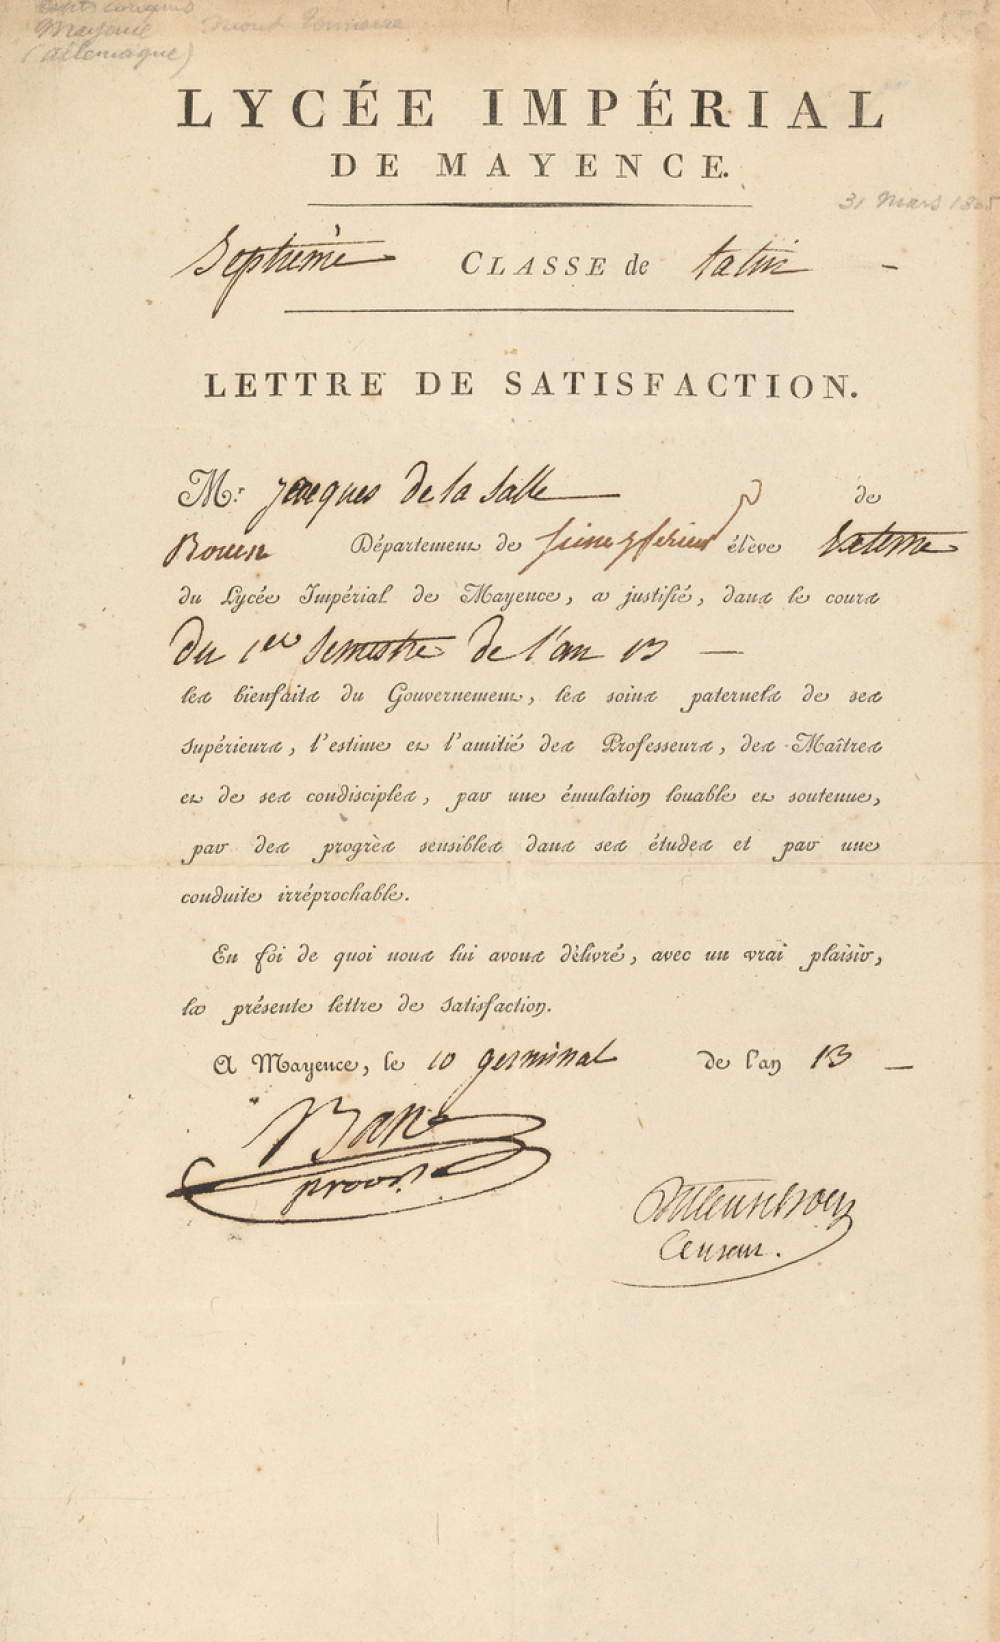 Mayence
(allemagne)
Mont Tonnerre
LYCÉE IMPÉRIAL
DE MAYENCE.
31 mars 1805
Septième CLASSE de latin
LETTRE DE SATISFACTION.
M.r Jacques de la Salle de
Rouen Département de Seine inférieure élève externe
du Lycée Impérial de Mayence, a justifié, dans le cours
du 1er Semestre de l'an 13
les bienfaits du Gouvernement, les soins paternels de ses
supérieurs, l'estime et l'amitié des Professeurs, des Maîtres
et de ses condisciples, par une émulation louable et soutenue,
par des progrès sensibles dans ses études et par une
conduite irréprochable.
En foi de quoi nous lui avons délivré, avec un vrai plaisir,
la présente lettre de satisfaction.
A Mayence, le 10 germinal de l'an 13
Censeur.